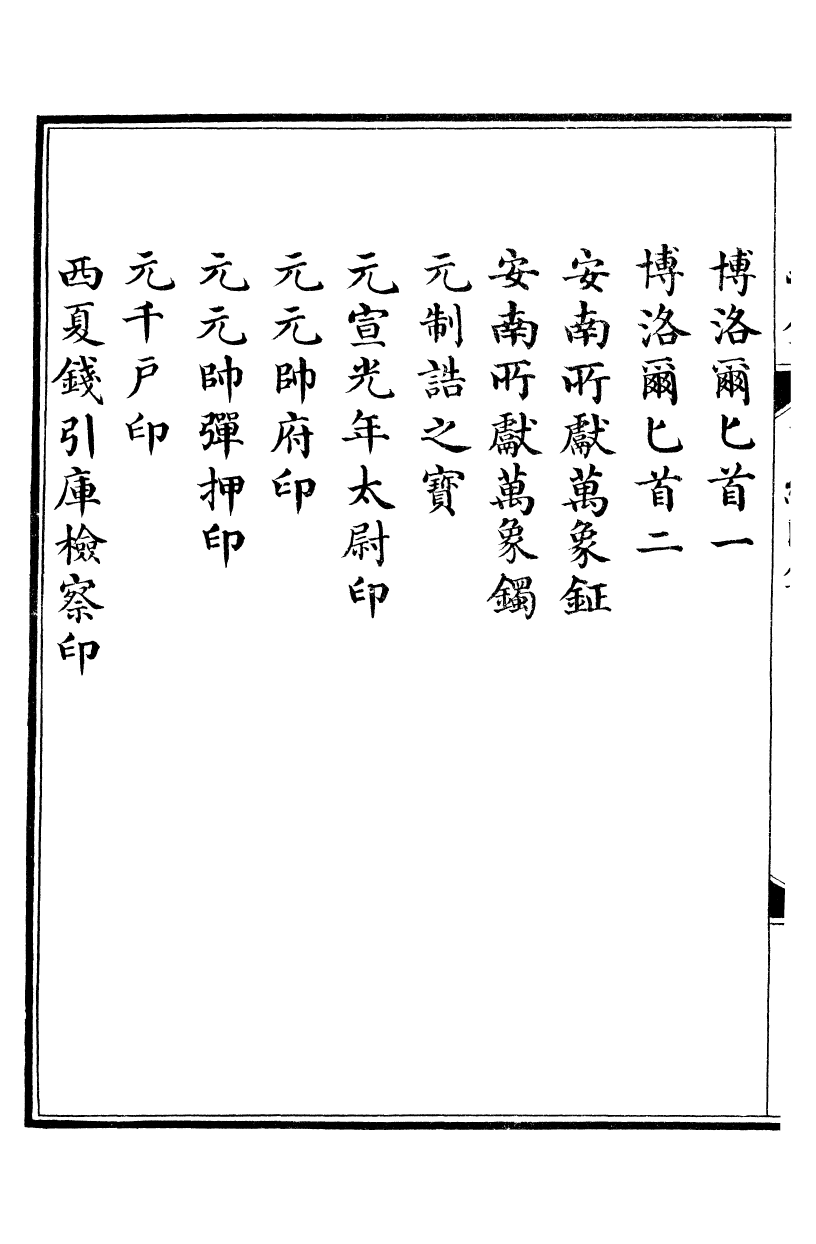 博洛爾匕首一
博洛爾匕首二
安南所獻萬象鉦
安南所獻萬象鐲
元制誥之寶
元宣光年太尉印
元元帥府印
元元帥彈押印
元千戶印
西夏錢引庫檢察印